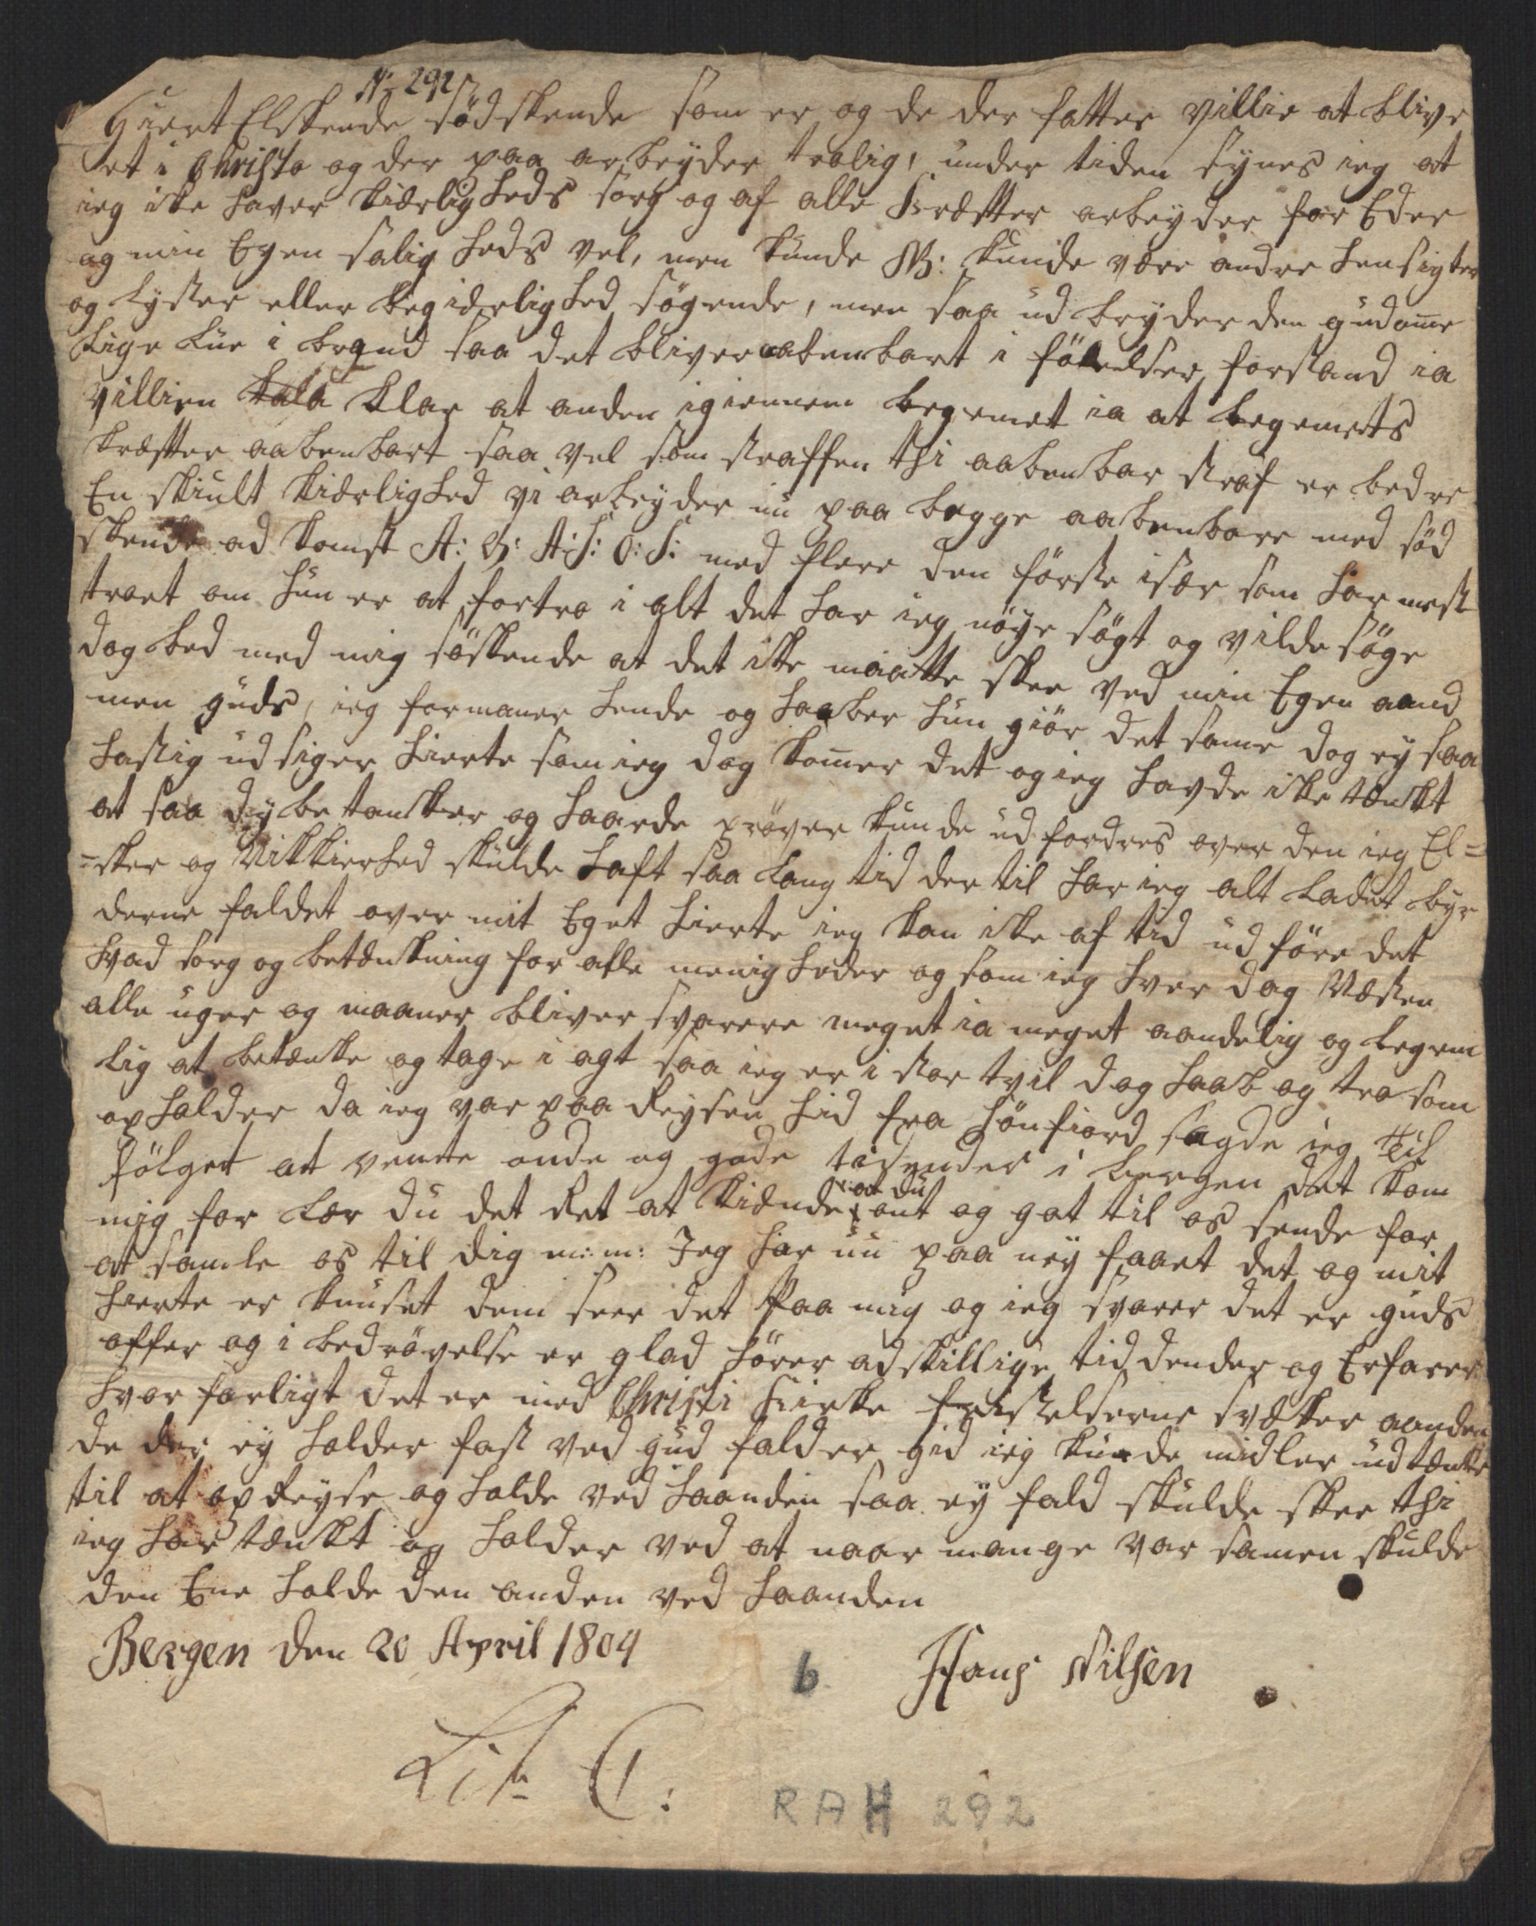 N: 292
Hiert Elskende södskende som er og de der fatter villie at blive
et i Christo og der paa arbeyder trolig, under tiden synes ieg at
ieg ikke haver kiærligheds sorg og af alle kræfter arbeyder for Eder
og min Egen salig heds vel, men kunde kunde være andre hensigter
og lyster eller begiærlighed søgende, men saa ud bryder den gudome
lige lue i brynd saa det bliver abenbart i følelser, forstand ia
villien klar at anden igiennem legemet ia at legemets
kræfter aabenbart saa vel som straffen thi aabenbar straf er bedre
En skiult kiærlighed vi arbeyder nu paa begge aabenbare med söd
skende ad komst A: O: A: H: O: H: med flere den förste især som har mest
troet om hun er at fortro i alt det har ieg nöye sögt og vilde söge
dog bed med mig söskende at det ikke maatte skee ved min Egen aand
men guds, ieg formaner hende og haaber hun giör det same dog ey saa
hastig ud siger hierte som ieg dog komer det og ieg havde ikke tænkt
at saa dybe tanker og haarde pröver kunde ud fordres over den ieg El=
=sker og Nikkierhed skulde haft saa lang tid der til har ieg alt ladet byr
derne faldet over mit Eget hierte ieg kan ikke af tid ud före det
hvad sorg og betænkning for alle menigheder og som ieg hver dag næsten
alle uger og maaner bliver svarere meget ia meget aandelig og legem
lig at betænke og tage i agt saa ieg er i stor tvil dog haab og tro som
op holder da ieg var paa Reysen hid fra Sönfiord sagde ieg til
fölget at vente onde og gode tisender i bergen det kom
mig for lær du det Ret at kiænde at du ont og got til os sende for
at samle os til dig m: m: Jeg har nu paa ney faaet det og mit
hierte er knuset dem seer det paa mig og ieg svarer det er guds
offer og i bedrövelse er glad hörer adskillige tid dender og Erfarer
hvor farligt det er med Christi kirke fristelserne svækker aanden
de der ey holder fast ved gud falder gid ieg kunde midler udtænke
til at op Reyse og holde ved haanden saa ey fald skulde skee thi
ieg har tænkt og holder ved at naar mange var samen skulde
den Ene holde den anden ved haanden
Bergen den 20 April 1804
b
Hans Nilsen
Lit: C:
RAH 292